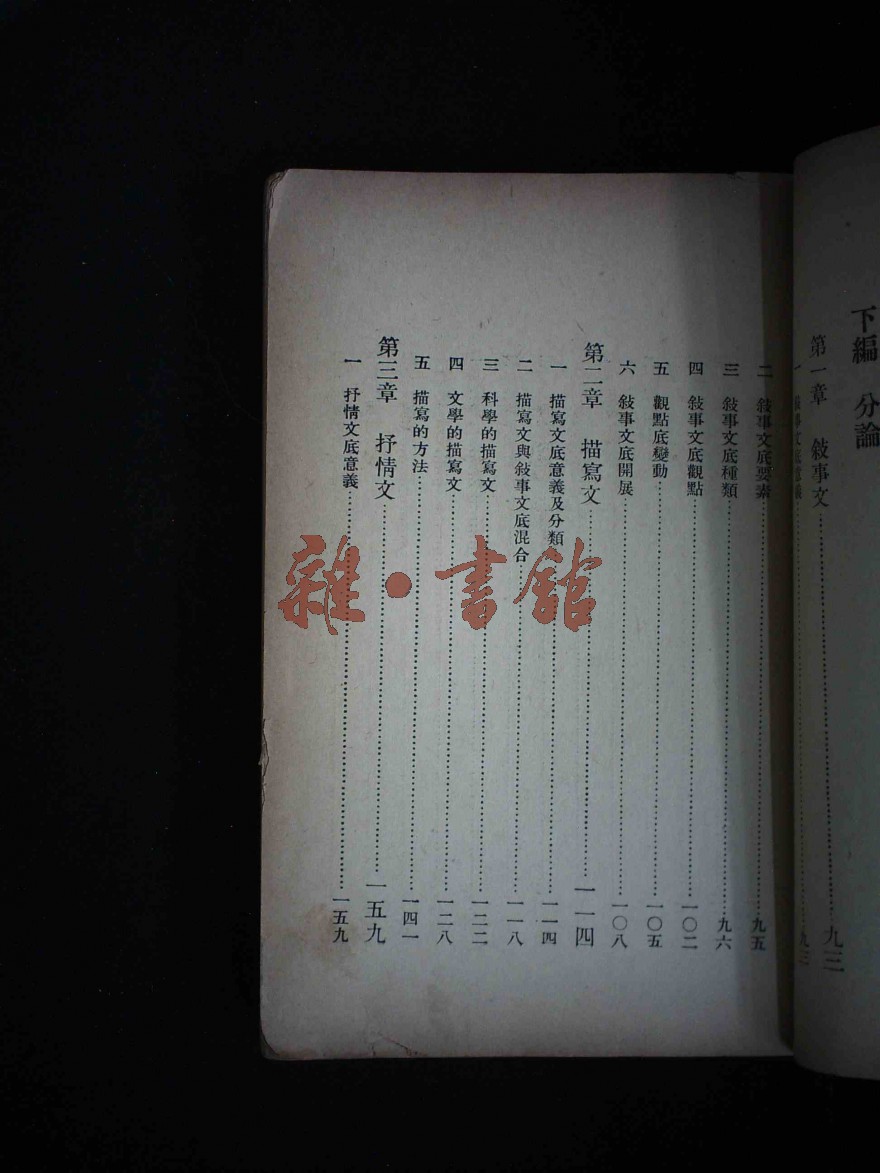 下編 分論
第一章 敍事文……九三
一 敍事文底意義……九三
二 敍事文底要素……九五
三 敍事文底種類……九六
四 敍事文底觀點……一〇二
五 觀點底變動……一〇五
六 敍事文底開展……一〇八
第二章 描寫文……一一四
一 描寫文底意義及分類……一一四
二 描寫文與敍事文底混合……一一八
三 科學的描寫文……一二二
四 文學的描寫文……一二八
五 描寫的方法……一四一
第三章 抒情文……一五九
一 抒情文底意義……一五九
雜·書館